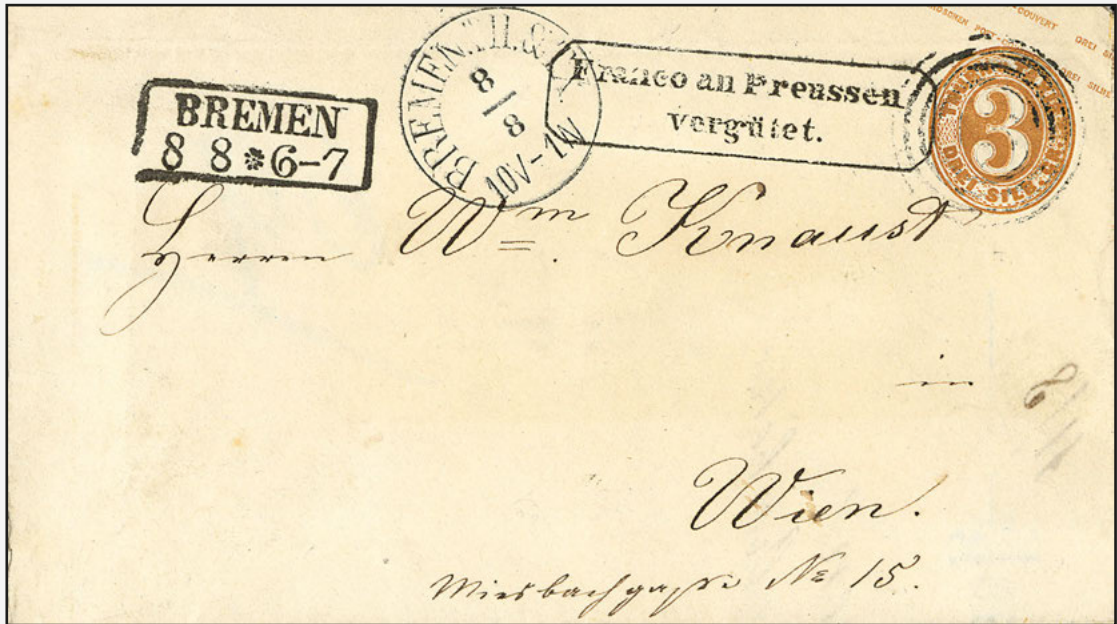 COUVERT
DREI
BREMEN
8 8 * 6-7
BREMEN. TH. &
8/8
10V-1N
Franco an Preussen
vergütet.
3
DREI SILB. GR.
Herren Wm. Knaust
in
Wien.
Miesbachgasse № 15.